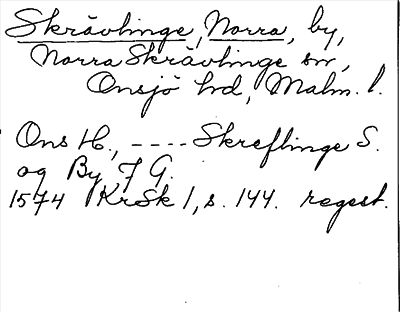 Skrävlinge, Norra, by,
Norra Skrävlinge sn,
Onsjö hd, Malm. l.
Ons H., ---- Skreflinge S.
og By 7 G.
1574 KrSk 1, s. 144. regest.